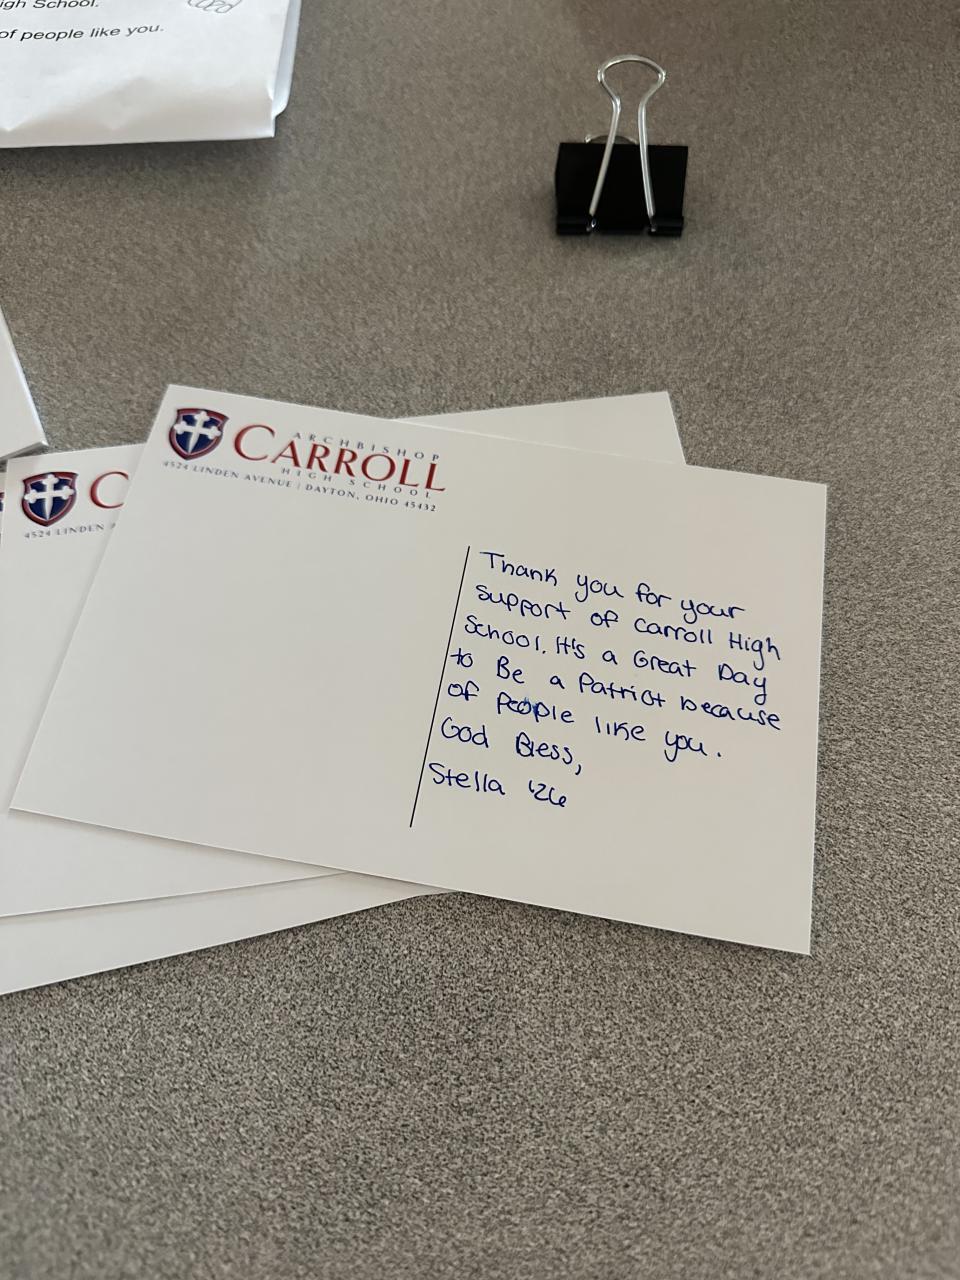 igh School.
of people like you.
ARCHBISHOP
CARROLL
HIGH SCHOOL
4524 LINDEN AVENUE | DAYTON, OHIO 45432
C
4524 LINDEN A
Thank you for your
support of Carroll High
School. It's a Great Day
to Be a Patriot because
of People like you.
God Bless,
Stella '26